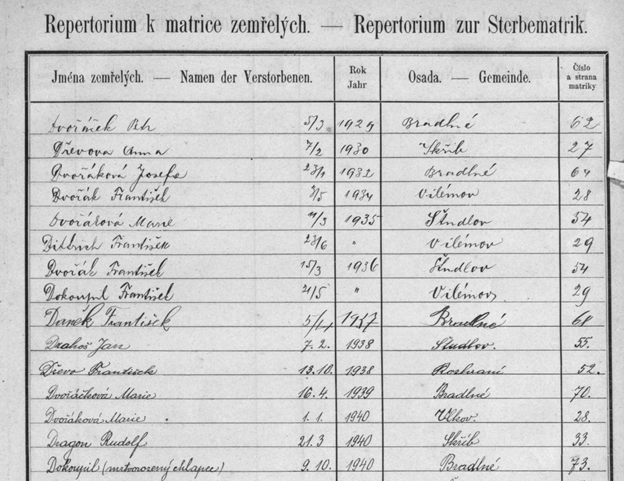 Repertorium k matrice zemřelých. — Repertorium zur Sterbematrik.
Jména zemřelých. — Namen der Verstorbenen. Rok Jahr Osada. — Gemeinde. Číslo a strana matriky
Dvořáček Petr 5/3 1929 Bradlné 62
Dřevova Anna 7/2 1930 Skřib 27
Dvořáková Josefa 1932 Bradlné 64
Dvořák František 7/5 1934 Vilémov 28
Dvořáková Marie 11/3 1935 Študlov 54
Dittrich František 23/6 " Vilémov 29
Dvořák František 15/3 1936 Študlov 54
Dokoupil František 21/5 " Vilémov 29
Daněk František 1937 Bradlné 68
Drahoš Jan 7. 2. 1938 Študlov. 55.
Dřevo František 13. 10. 1938 52.
Dvořáčková Marie 16. 4. 1939 Bradlné 70.
Dvořáková Marie 1. 1. 1940 Vlkov. 28.
Dragon Rudolf 21. 3 1940 Skřib 33.
Dokoupil (mrtvorozený chlapec) 9. 10. 1940 Bradlné 73.